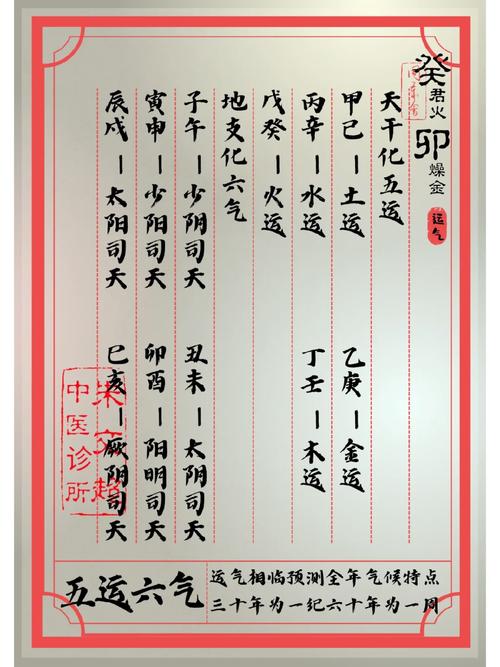 癸君火
卯燥金
运气
天干化五运
甲己－土运　乙庚－金运
丙辛－水运　丁壬－木运
戊癸－火运
地支化六气
子午－少阴司天　丑未－太阴司天
寅申－少阳司天　卯酉－阳明司天
辰戌－太阳司天　巳亥－厥阴司天
中医诊所
五运六气
运气相临预测全年气候特点
三十年为一纪六十年为一周